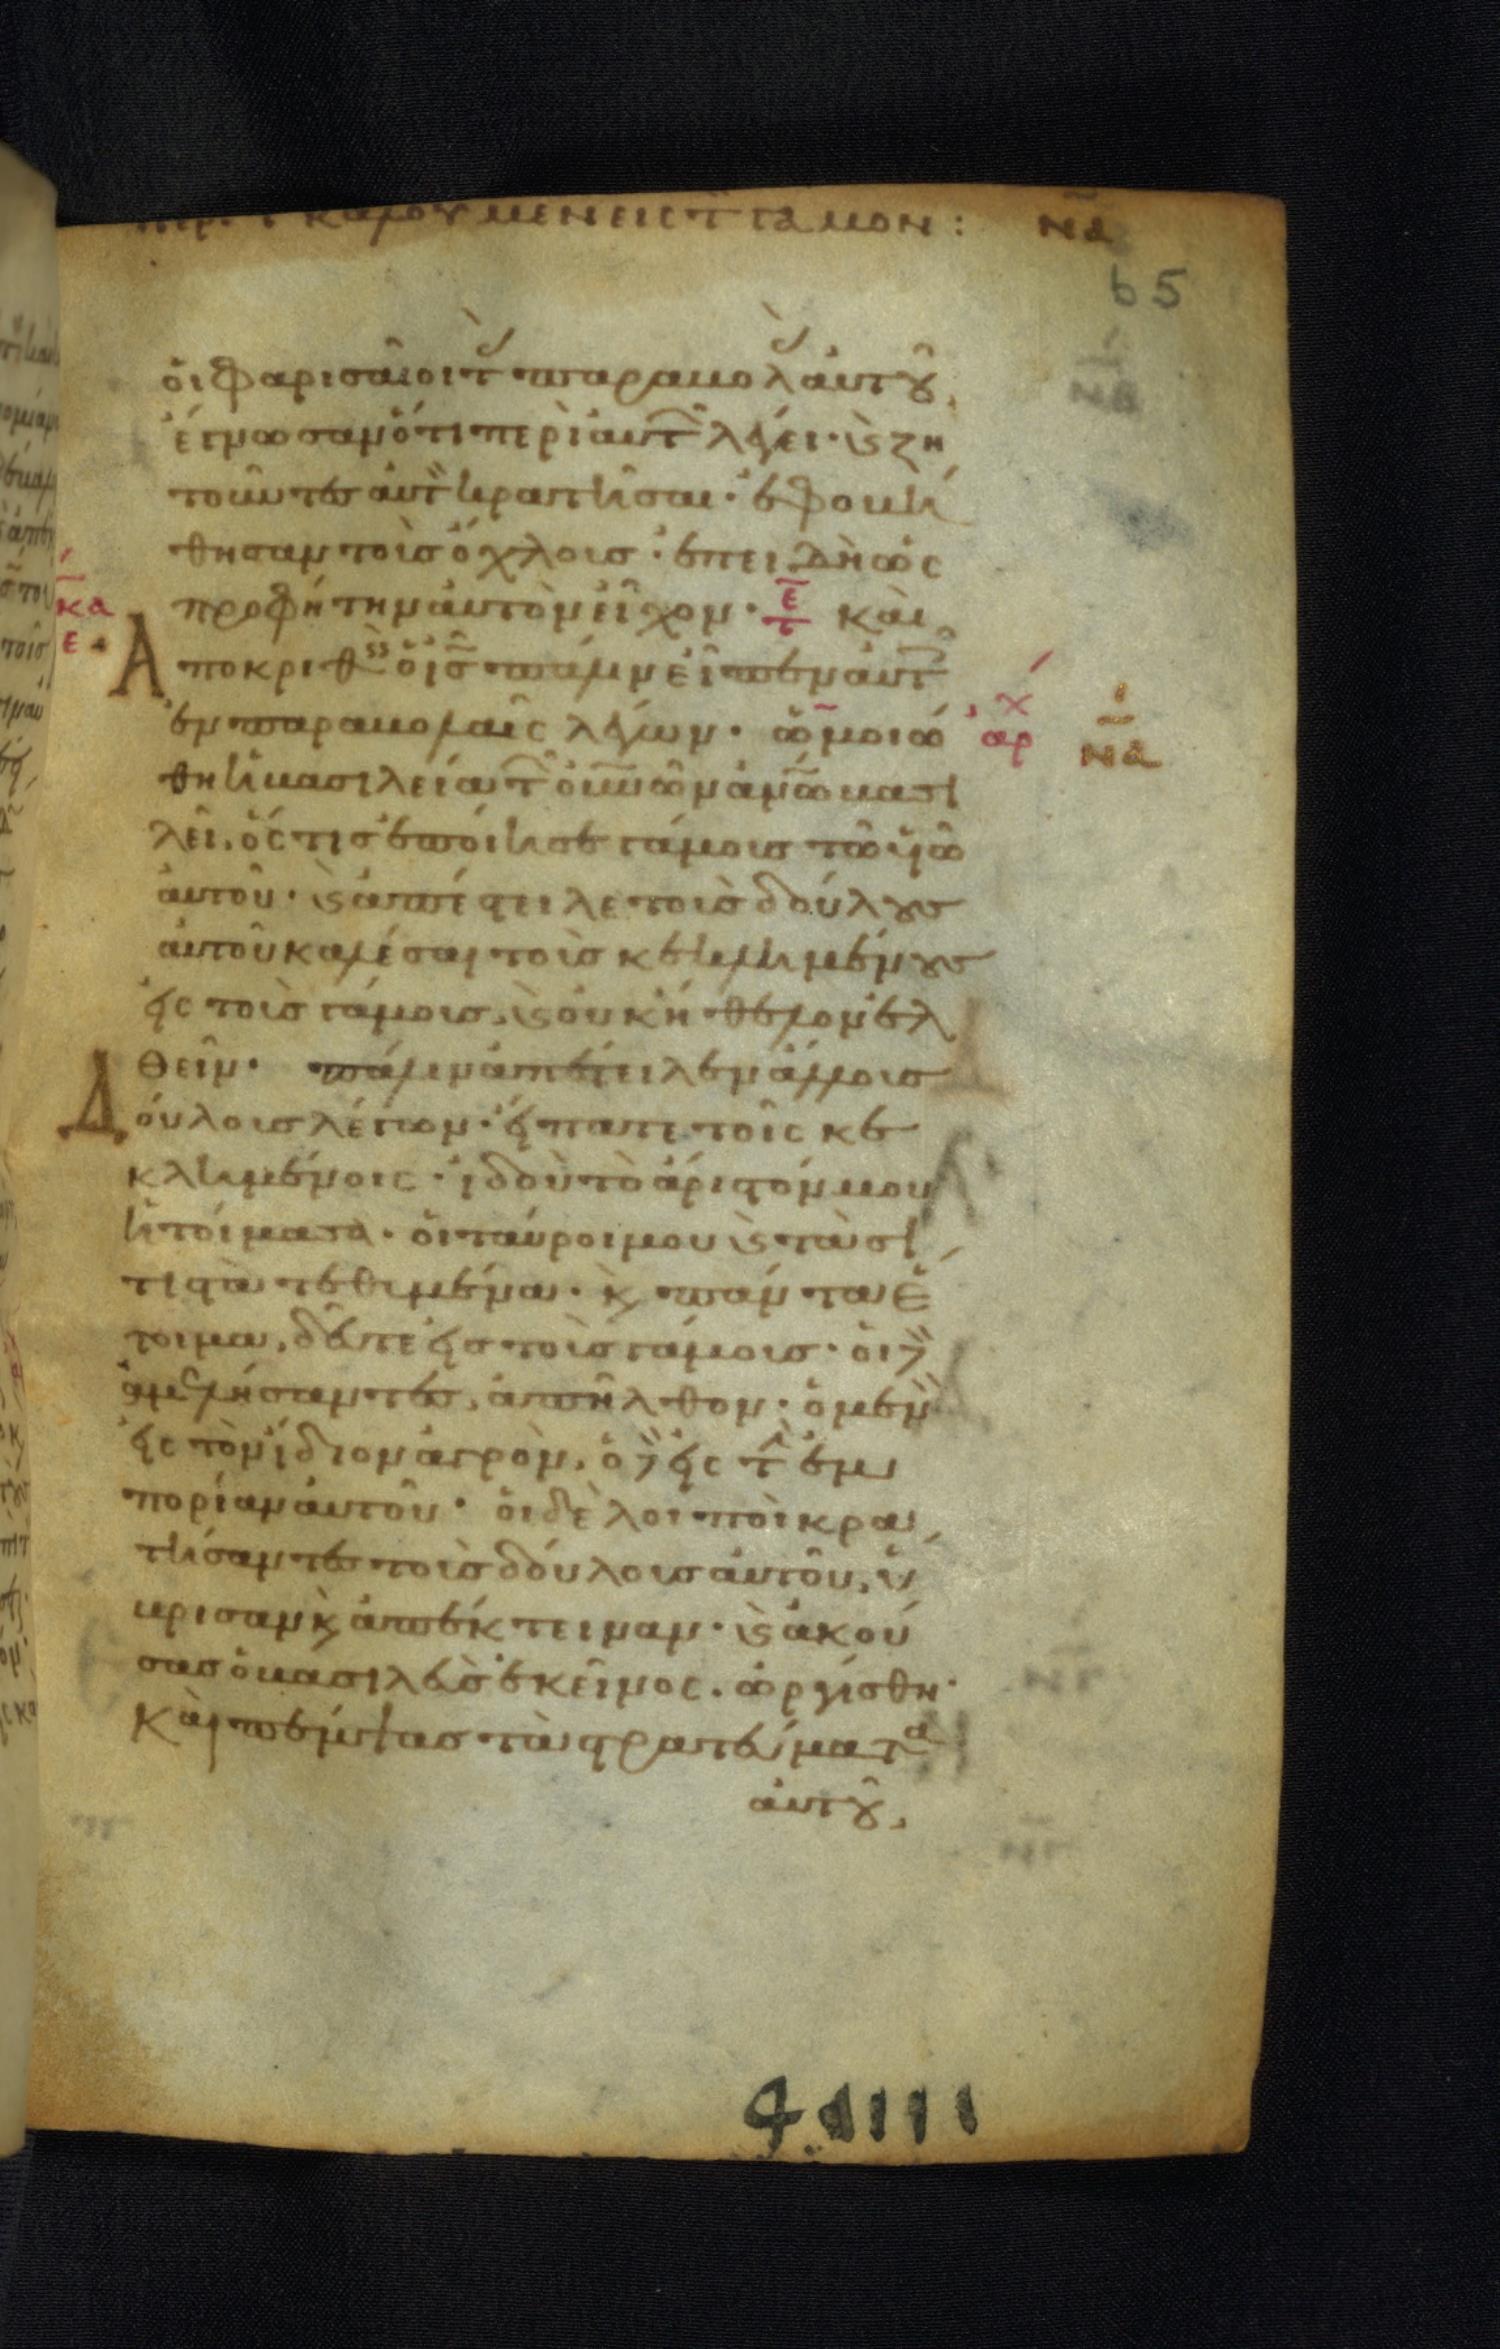 καλουμενεις τ γαμον : να
65
οἱ φαρισαῖοι τ παραβολ αυτου,
ἔγνωσαν ὅτι περὶ αὐτ λέγει· ϗ ζη
τοῦντες αὐτ κρατῆσαι· ἐφοβή
θησαν τοὺσ ὄχλους· ἐπειδὴ ὡς
προφήτην αὐτὸν εἶχον· ε τ καὶ
κα
ε
Αποκριθ ὁ ις πάλιν εἶπεν αὐτ
ἐν παραβολαῖς λέγων· ὡμοιώ
χ
αρ
να
θη ἡ βασιλεία τ οὐνων ἀνω βασι
λεῖ, ὅστις ἐποίησε γάμους τῶ υἱῶ
αὐτοῦ· ϗ ἀπέστειλε τοὺσ δούλους
αὐτοῦ καλέσαι τοὺσ κεκλημένους
εἰς τοὺσ γάμους, ϗ οὐκ ἤθελον ἐλ
θεῖν· πάλιν ἀπέστειλεν ἄλλους
Δούλους λέγων· εἴπατε τοῖς κε
κλημένοις· ἰδοὺ τὸ ἄριστόν μου
ἡτοίμασα· οἱ ταῦροί μου ϗ τὰ σι
τιστὰ τεθυμένα· ϗ πάντα ἕ
τοιμα, δεῦτε εἰς τοὺσ γάμους· οἱ δ
ἀμελήσαντες, ἀπῆλθον· ὁ μὲν
εἰς τὸν ἴδιον ἀγρὸν, ὁ δ εἰς τ ἐμ
πορίαν αὐτοῦ· οἱ δὲ λοιποὶ κρα
τήσαντες τοὺσ δούλους αὐτοῦ, ὕ
βρισαν ϗ ἀπέκτειναν· ϗ ἀκού
σας ὁ βασιλεὺς ἐκεῖνος, ὠργίσθη·
Καὶ πέμψας τὰ στρατεύματα
αὐτοῦ,